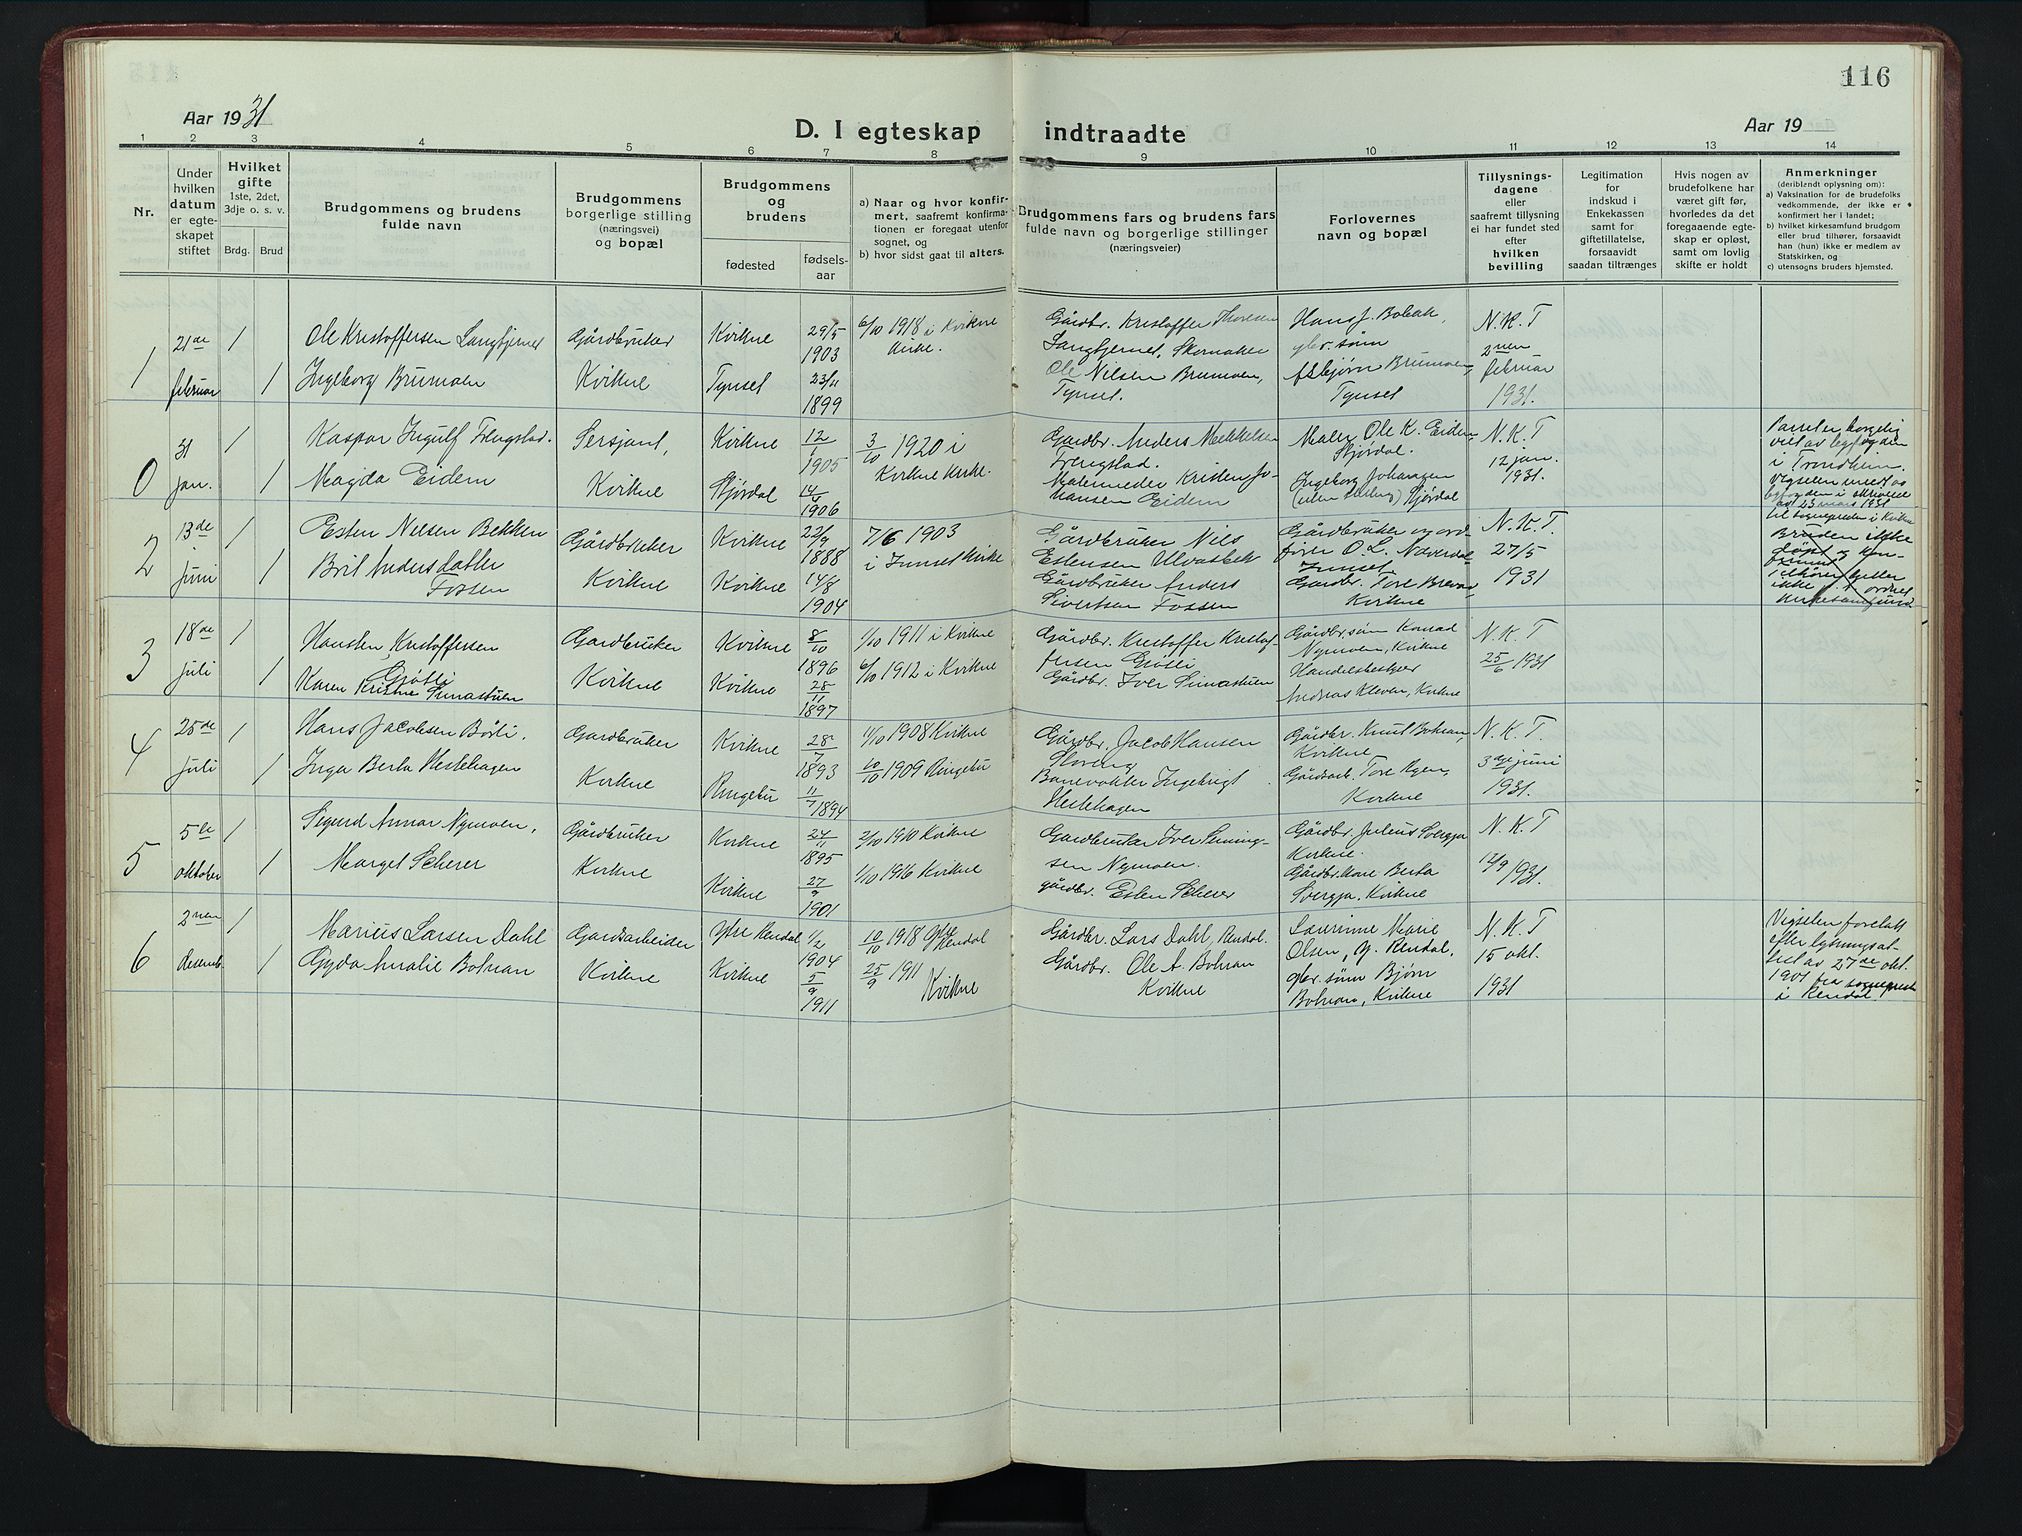 116
Aar 1931
D. I egteskap indtraadte
Aar 19
1 2 3 4 5 6 7 8 9 10 11 12 13 14
Nr.
Under
hvilken
datum
er egte-
skapet
stiftet
Hvilket
gifte
1ste, 2det,
3dje o. s. v.
Brdg. Brud
Brudgommens og brudens
fulde navn
Brudgommens
borgerlige stilling
(næringsvei)
og bopæl
Brudgommens
og
brudens
fødested
fødsels-
aar
a) Naar og hvor konfir-
mert, saafremt konfirma-
tionen er foregaat utenfor
sognet, og
b) hvor sidst gaat til alters.
Brudgommens fars og brudens fars
fulde navn og borgerlige stillinger
(næringsveier)
Forlovernes
navn og bopæl
Tillysnings-
dagene
eller
saafremt tillysning
ei har fundet sted
efter
hvilken
bevilling
Legitimation
for
indskud i
Enkekassen
samt for
giftetillatelse,
forsaavidt
saadan tiltrænges
Hvis nogen av
brudefolkene har
været gift før,
hvorledes da det
foregaaende egte-
skap er opløst,
samt om lovlig
skifte er holdt
Anmerkninger
(deriblendt oplysning om):
a) Vaksination for de brudefolks
vedkommende, der ikke er
konfirmert her i landet;
b) hvilket kirkesamfund brudgom
eller brud tilhører, forsaavidt
han (hun) ikke er medlem av
Statskirken, og
c) utensogns bruders hjemsted.
1
21de
februar
1
1
Ole Kristoffersen Langtjernet
Ingeborg Brumoen
Gårdbruker
Kvikne
Kvikne
Tynset
29/5
1903
23/11
1899
6/10 1918 i Kvikne
Kirke.
Gårdbr. Kristoffer Thoresen
Langtjernet, Skomaker
Ole Nilsen Brumoen,
Tynset.
Hans J. Bobak,
gbr. søn
Asbjørn Brumoen,
Tynset
N. K. T
2nen
februar
1931.
0
31
jan.
1
1
Kaspar Ingulf Frengstad.
Magda Eidem
Sersjant,
Kvikne
Kvikne
Stjørdal
12/1
1905
14/4
1906
3/10 1920 i
Kvikne Kirke.
Gårdbr. Anders Mikkelsen
Frengstad.
Malermester Kristen Jo-
hansen Eidem
Maler Ole K. Eidem
Stjørdal.
Ingeborg Johansen
Stjørdal
N. K. T
12 jan.
1931.
Parret er borgerlig
viet av byfogden
i Trondheim.
av 23 mars 1931
til sognepresten i Kvikne
2
13de
juni
1
1
Esten Nilsen Bekken
Brit Andersdatter
Fossen
Gårdbruker
Kvikne
Kvikne
Kvikne
22/9
1888
14/8
1904
7/6 1903
i Innset Kirke
Gårdbruker Nils
Estensen Ulvatbek
Gårdbruker Anders
Sivertsen Fossen
Gårdbruker og ord-
fører O. L. Næverdal
Innset
Gårdbr. Tore
Kvikne
N. K. T.
27/5
1931
Bruden ikke
døpt og kon-
firmert
Tilhører heller
ikke
kirkesamfund
3
18de
juli
1
1
Hansten Kristoffersen
Grøtli
Karen Kristine Simastuen
Gardbruker
Kvikne
Kvikne
Kvikne
8/10
1896
28/11
1897
1/10 1911 i Kvikne
6/10 1912 i Kvikne
Gårdbr. Kristoffer Kristof-
fersen Grøtli
Gårdbr. Iver Simastuen
Gårdbr. søn Konrad
Nymoen, Kvikne
Handelsbestyrer
Andreas Kleven, Kvikne
N. K. T
25/6 1931
4
25de
juli
1
1
Hans Jacobsen Børli.
Inga Berta Hestehagen
Gardbruker
Kvikne
Kvikne
Ringebu
28/7
1893
11/7 1894
11/10 1908 Kvikne
10/10 1909 Ringebu
Gårdbr. Jacob Hansen
Banevokter Ingebrigt
Hestehagen
Gårdbr. Knut Bohran,
Kvikne
Gårdsarb. Tore Ryen,
Kvikne
N. K. T.
3dje juni
1931.
5
5te
oktober
1
1
Sigurd Annar Nymoen,
Marget Scherer
Gårdbruker
Kvikne
Kvikne
Kvikne
24/11
1895
27/9
1901
2/10 1910 Kvikne
1/10 1916 Kvikne
Gardbruker Iver Siming-
sen Nymoen.
gårdbr. Esten Scherer
Gårdbr. Julius Svergja
Kvikne.
Gårdbr. kone Berta
Svergja, Kvikne
N. K. T
12/9 1931.
6
2nen
desemb.
1
1
Marius Larsen Dahl
Gyda Amalie Bohran
Gardsarbeider
Kvikne
Ytre Rendal
Kvikne
1/2
1904
5/9
1911
10/10 1918 Ytre
Rendal
25/9 1911
Kvikne
Gårdbr. Lars Dahl, Rendal.
Gårdbr. Ole A. Bohran
Kvikne
Laurinne Marie
Olsen, Y. Rendal.
gbr. søn Bjørn
Bohran, Kvikne
N. K. T
15 okt.
1931
Vigselen foretatt
efter lysningsat-
test av 27de okt.
fra sogneprest
i Rendal.